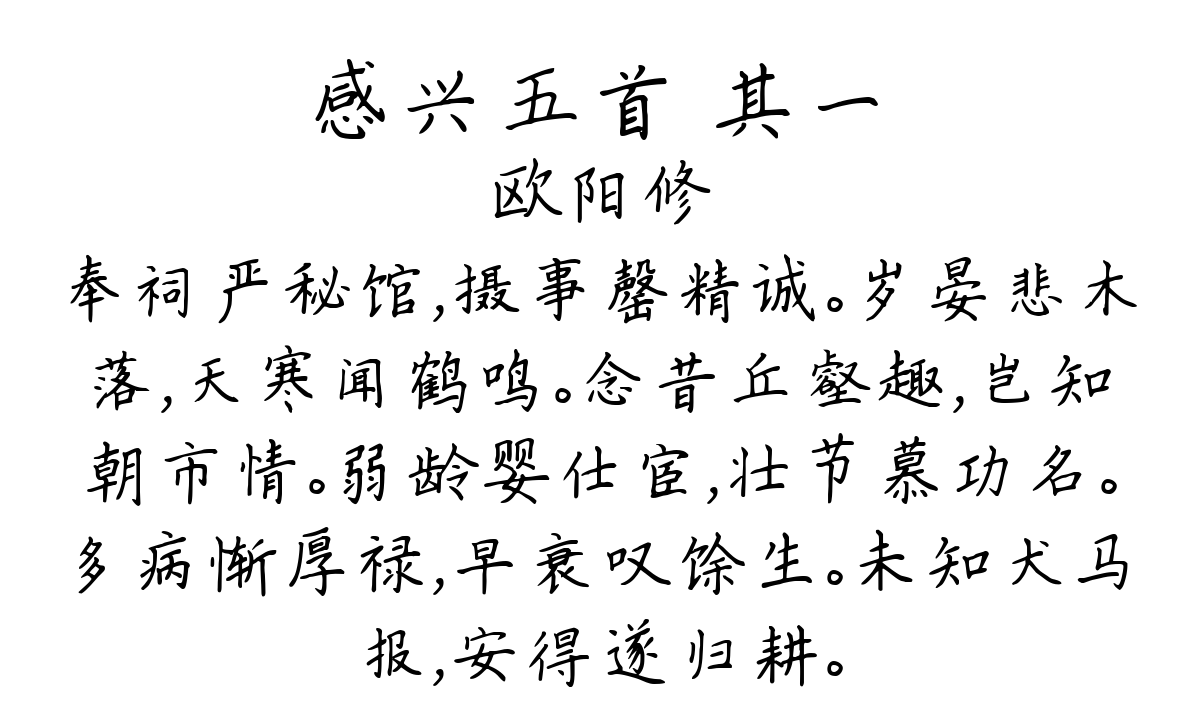 感兴五首 其一
欧阳修
奉祠严秘馆,摄事罄精诚。岁晏悲木
落,天寒闻鹤鸣。念昔丘壑趣,岂知
朝市情。弱龄婴仕宦,壮节慕功名。
多病惭厚禄,早衰叹馀生。未知犬马
报,安得遂归耕。